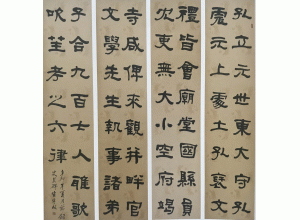 孔立元世東大守孔
彪元上處土孔襃文
禮皆會廟堂國縣員
冗吏無大小空府竭
寺咸俾來觀并畔官
文學先生執事諸弟
子合九百七人雅歌
吹笙考之六律